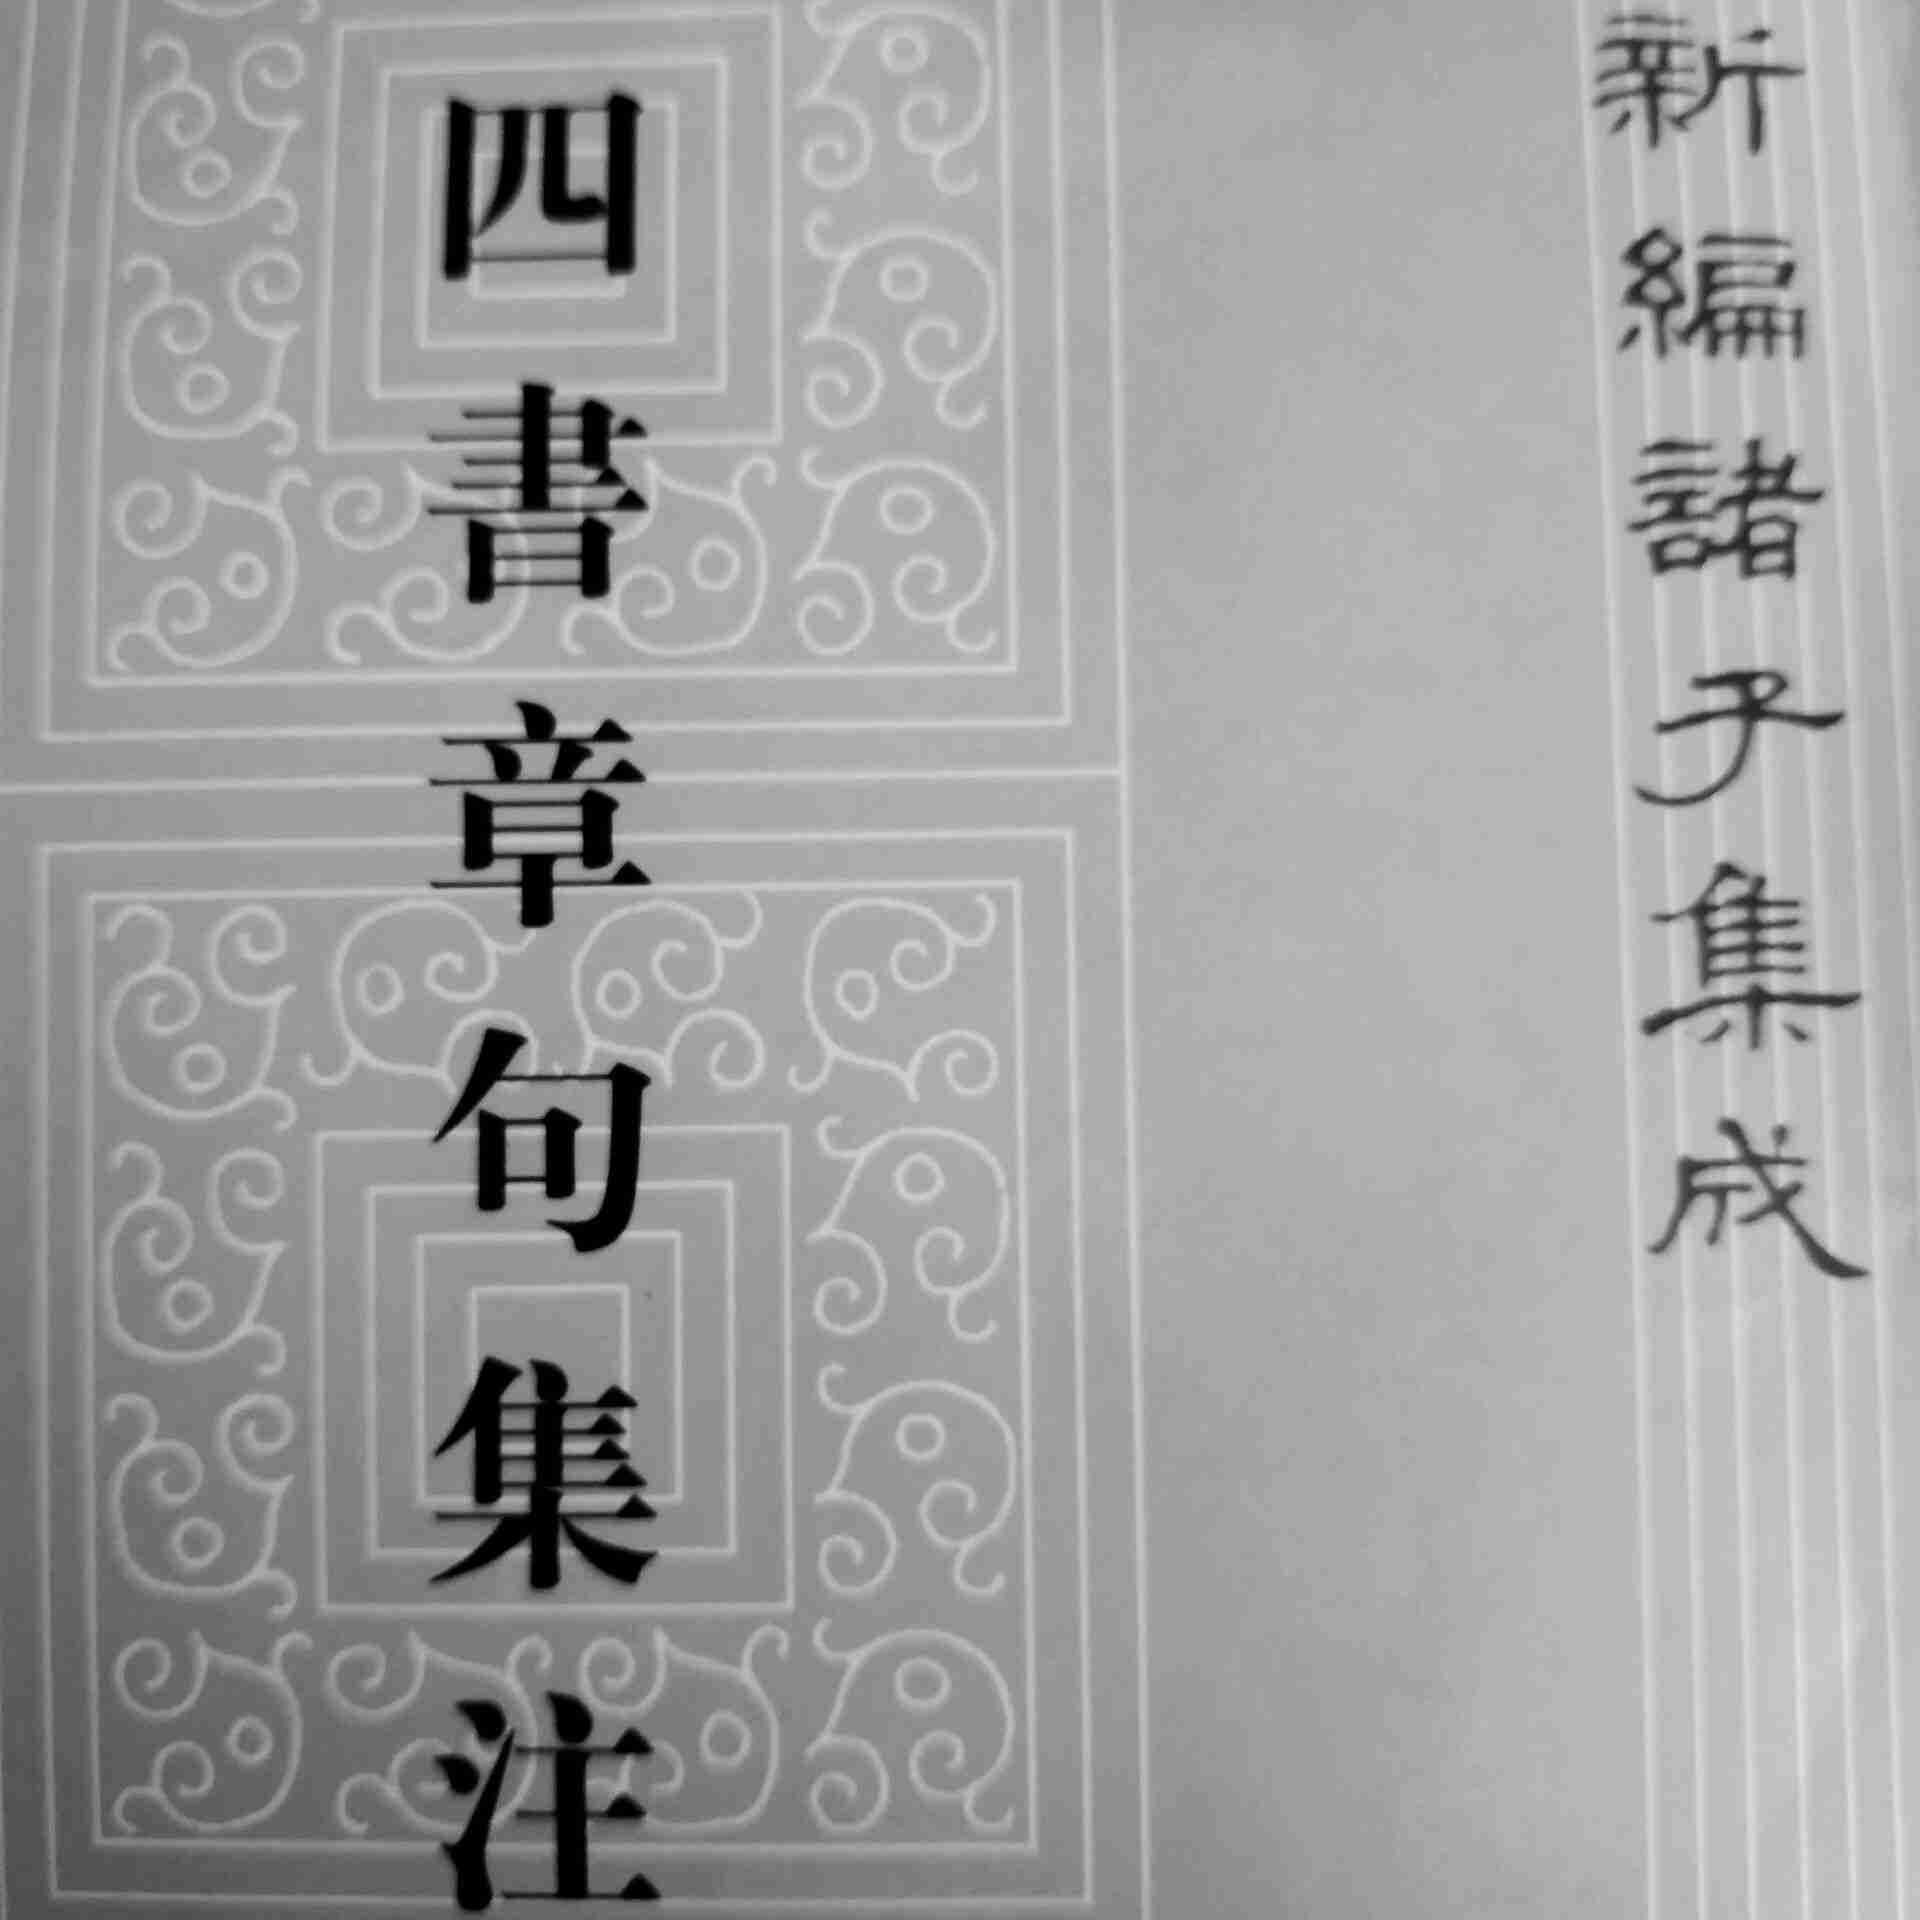 新編諸子集成
四書章句集注